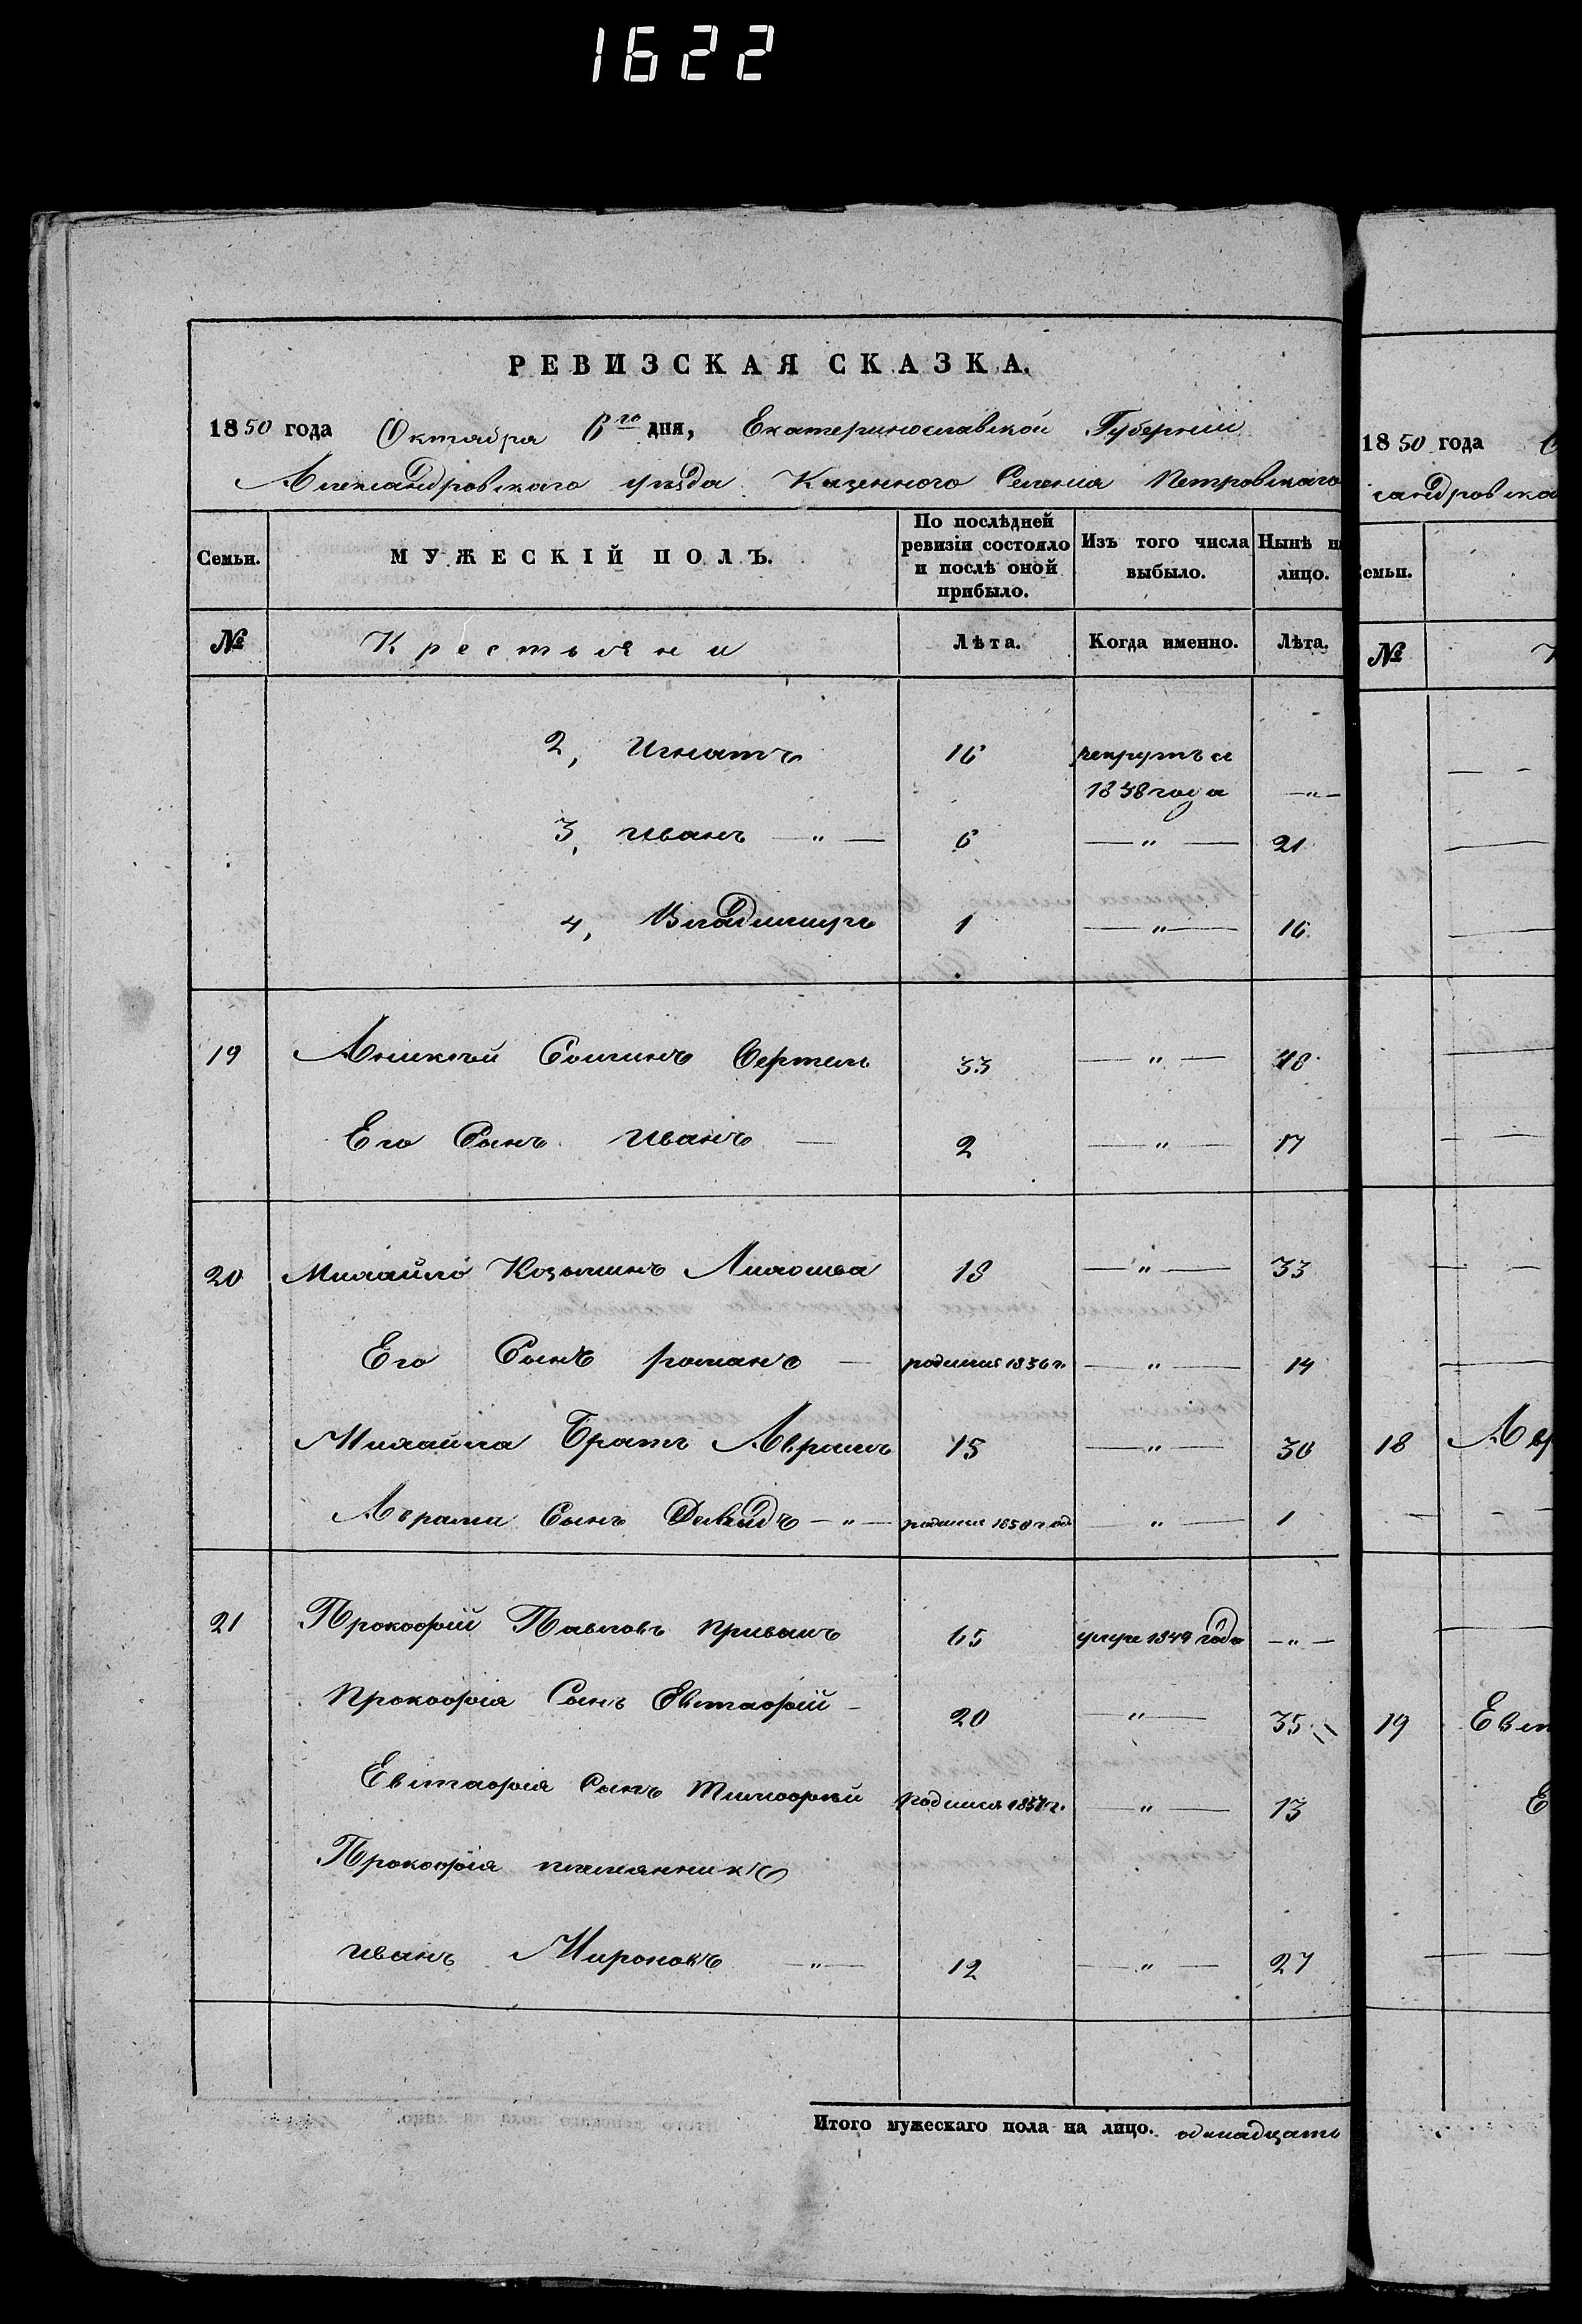 1622
РЕВИЗСКАЯ СКАЗКА.
1850 года Октября 6го дня, Екатеринославской Губерніи
Александровскаго уѣзда Казенного Селенія Петровскаго
Семьи. МУЖЕСКІЙ ПОЛЪ. По послѣдней ревизіи состояло и послѣ оной прибыло. Изъ того числа выбыло. Нынѣ на лицо.
№ Крестьяни Лѣта. Когда именно. Лѣта.
2, Игнатъ 16 рекрутъ съ 1838 года —"—
3, Иванъ —"— 6 —"— 21
4, Владимиръ 1 —"— 16
19 Аникѣй Фоминъ 33 —"— 48
Его Сынъ Иванъ — 2 —"— 17
20 Михайло Козьминъ 18 —"— 33
Его Сынъ романъ — родился 1836 г. —"— 14
Михайла Братъ Аврамъ 15 —"— 30
Аврама Сынъ Давыдъ —"— родился 1850 год —"— 1
21 Прокофій Павловъ 65 умре 1849 года —"—
Прокофія Сынъ Евтафій — 20 —"— 35
Евтафія Сынъ Тимофѣй родился 1837 г. —"— 13
Прокофія племянникъ
Иванъ Мироновъ —"— 12 —"— 27
Итого мужескаго пола на лицо. одинадцать
1850 года
сандровска
емьи.
№
18 Авр
19 Евт
Е